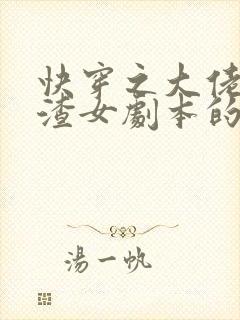 快穿之大佬
渣女劇本的
湯一帆